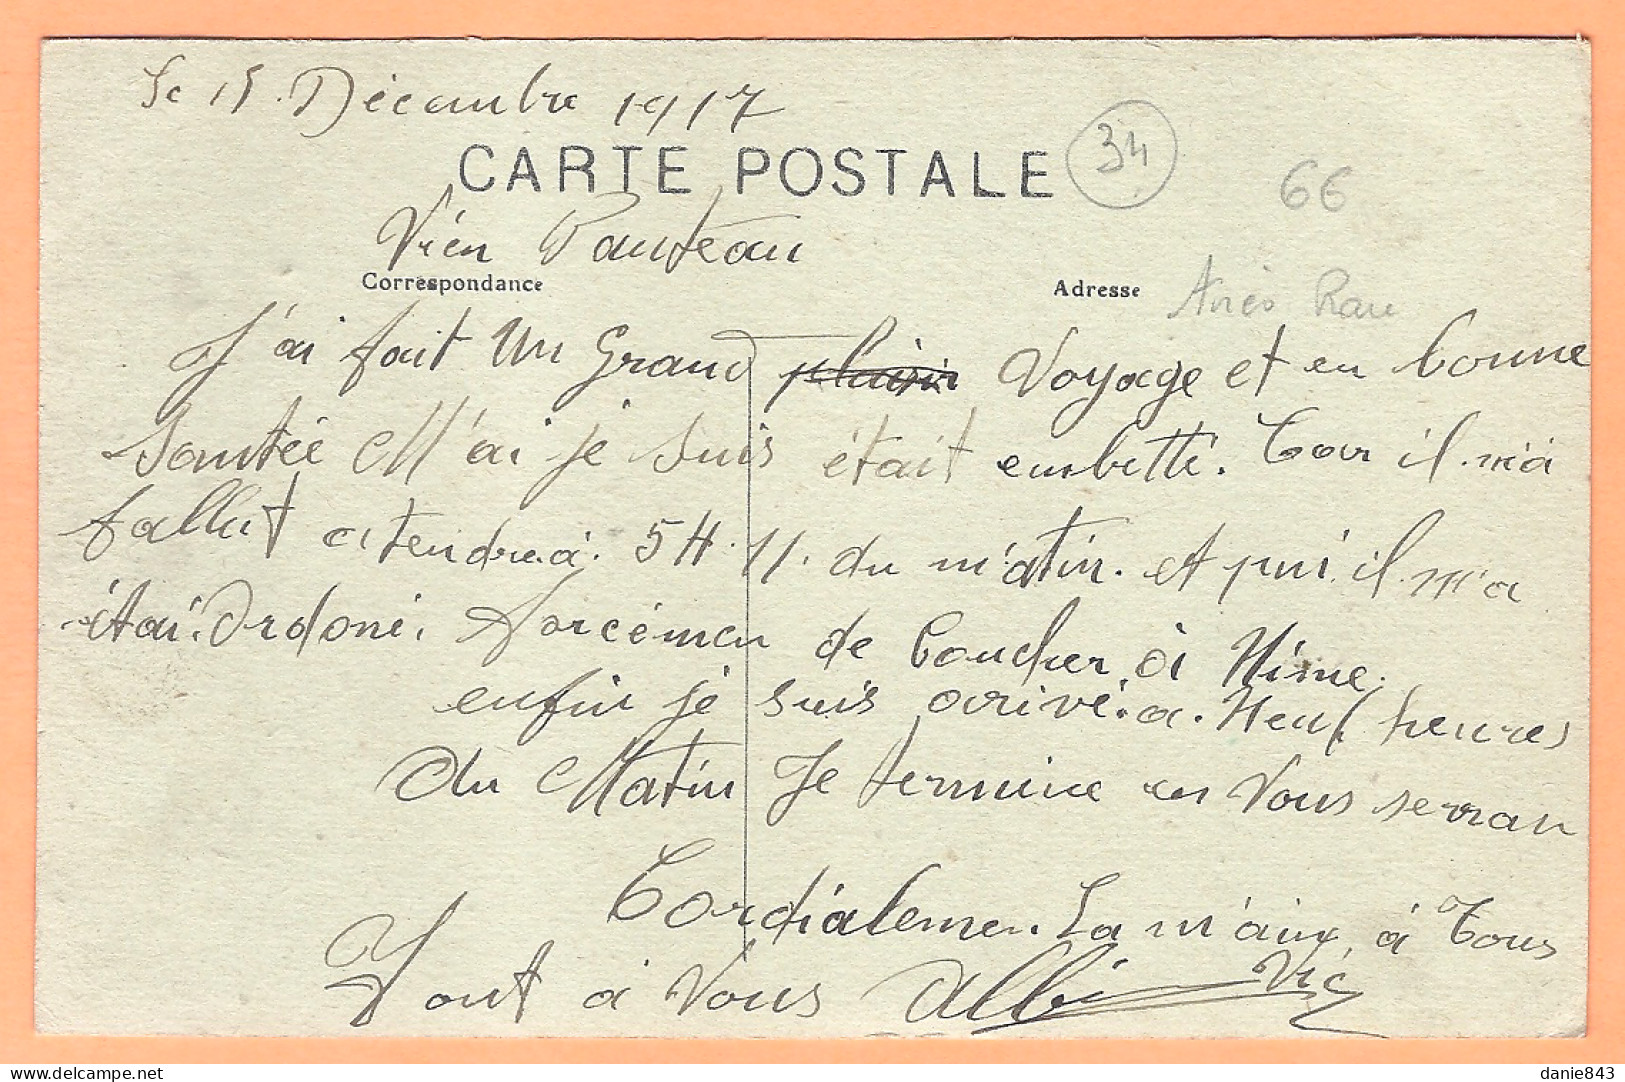 Le 15. Décembre 1917
CARTE POSTALE
34
66
Vién Pauteau
Correspondance
Adresse
J'ai fait Un Grand plaisir Voyage et en bonne
Santée M'ai je suis était embetté. Car il m'a
fallut atendre à. 5 H. 11. du matin. et pui il m'a
étai. Ordoné. Forcémen de Coucher à Nime.
enfin je suis arrivé. a. Neuf heures
du Matin Je termine en Vous serran
Cordialemen. La m'ain à Tous
Tout à Vous Albi Vic
danie843